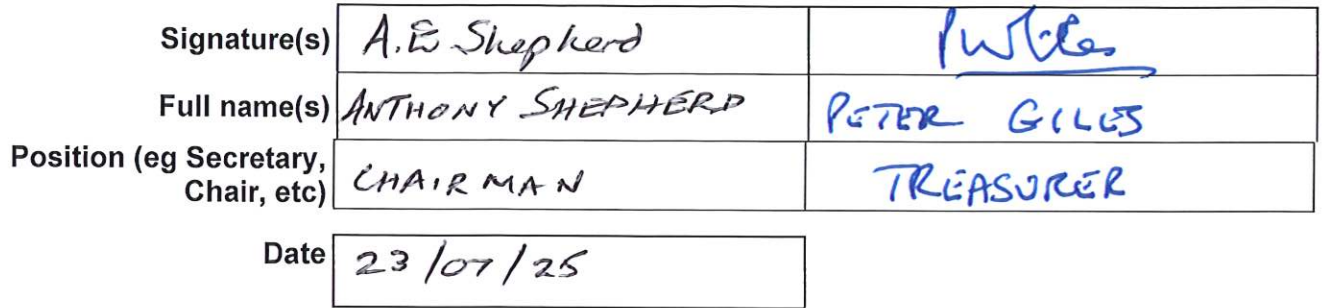 Signature(s) A.E Shepherd PW Giles
Full name(s) ANTHONY SHEPHERD PETER GILES
Position (eg Secretary,
Chair, etc) CHAIRMAN TREASURER
Date 23/07/25